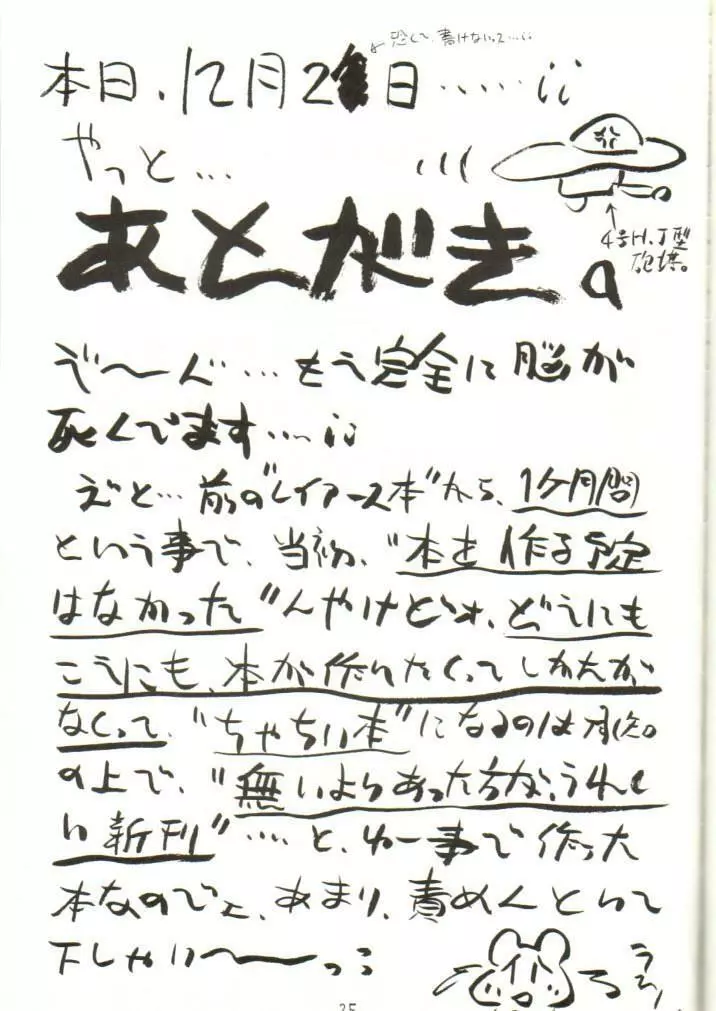 恐くて、書けないって…
本日、12月2 日……
やっと…
あとがき。
4号H.J型
砲塔。
ず〜ん…もう完全に脳が
死んでます…
えと…前の"レイアース本"から、1ヶ月間
という事で、当初、"本を作る予定
はなかった"んやけどォ、どうにも
こうにも、本が作りたくってしかたが
なくって、"ちゃちい本"になるのは承知。
の上で、"無いよりあった方がうれし
い新刊"……と、ゆー事で作った
本なのでェ、あまり、責めんといて
下しゃい〜っ
25